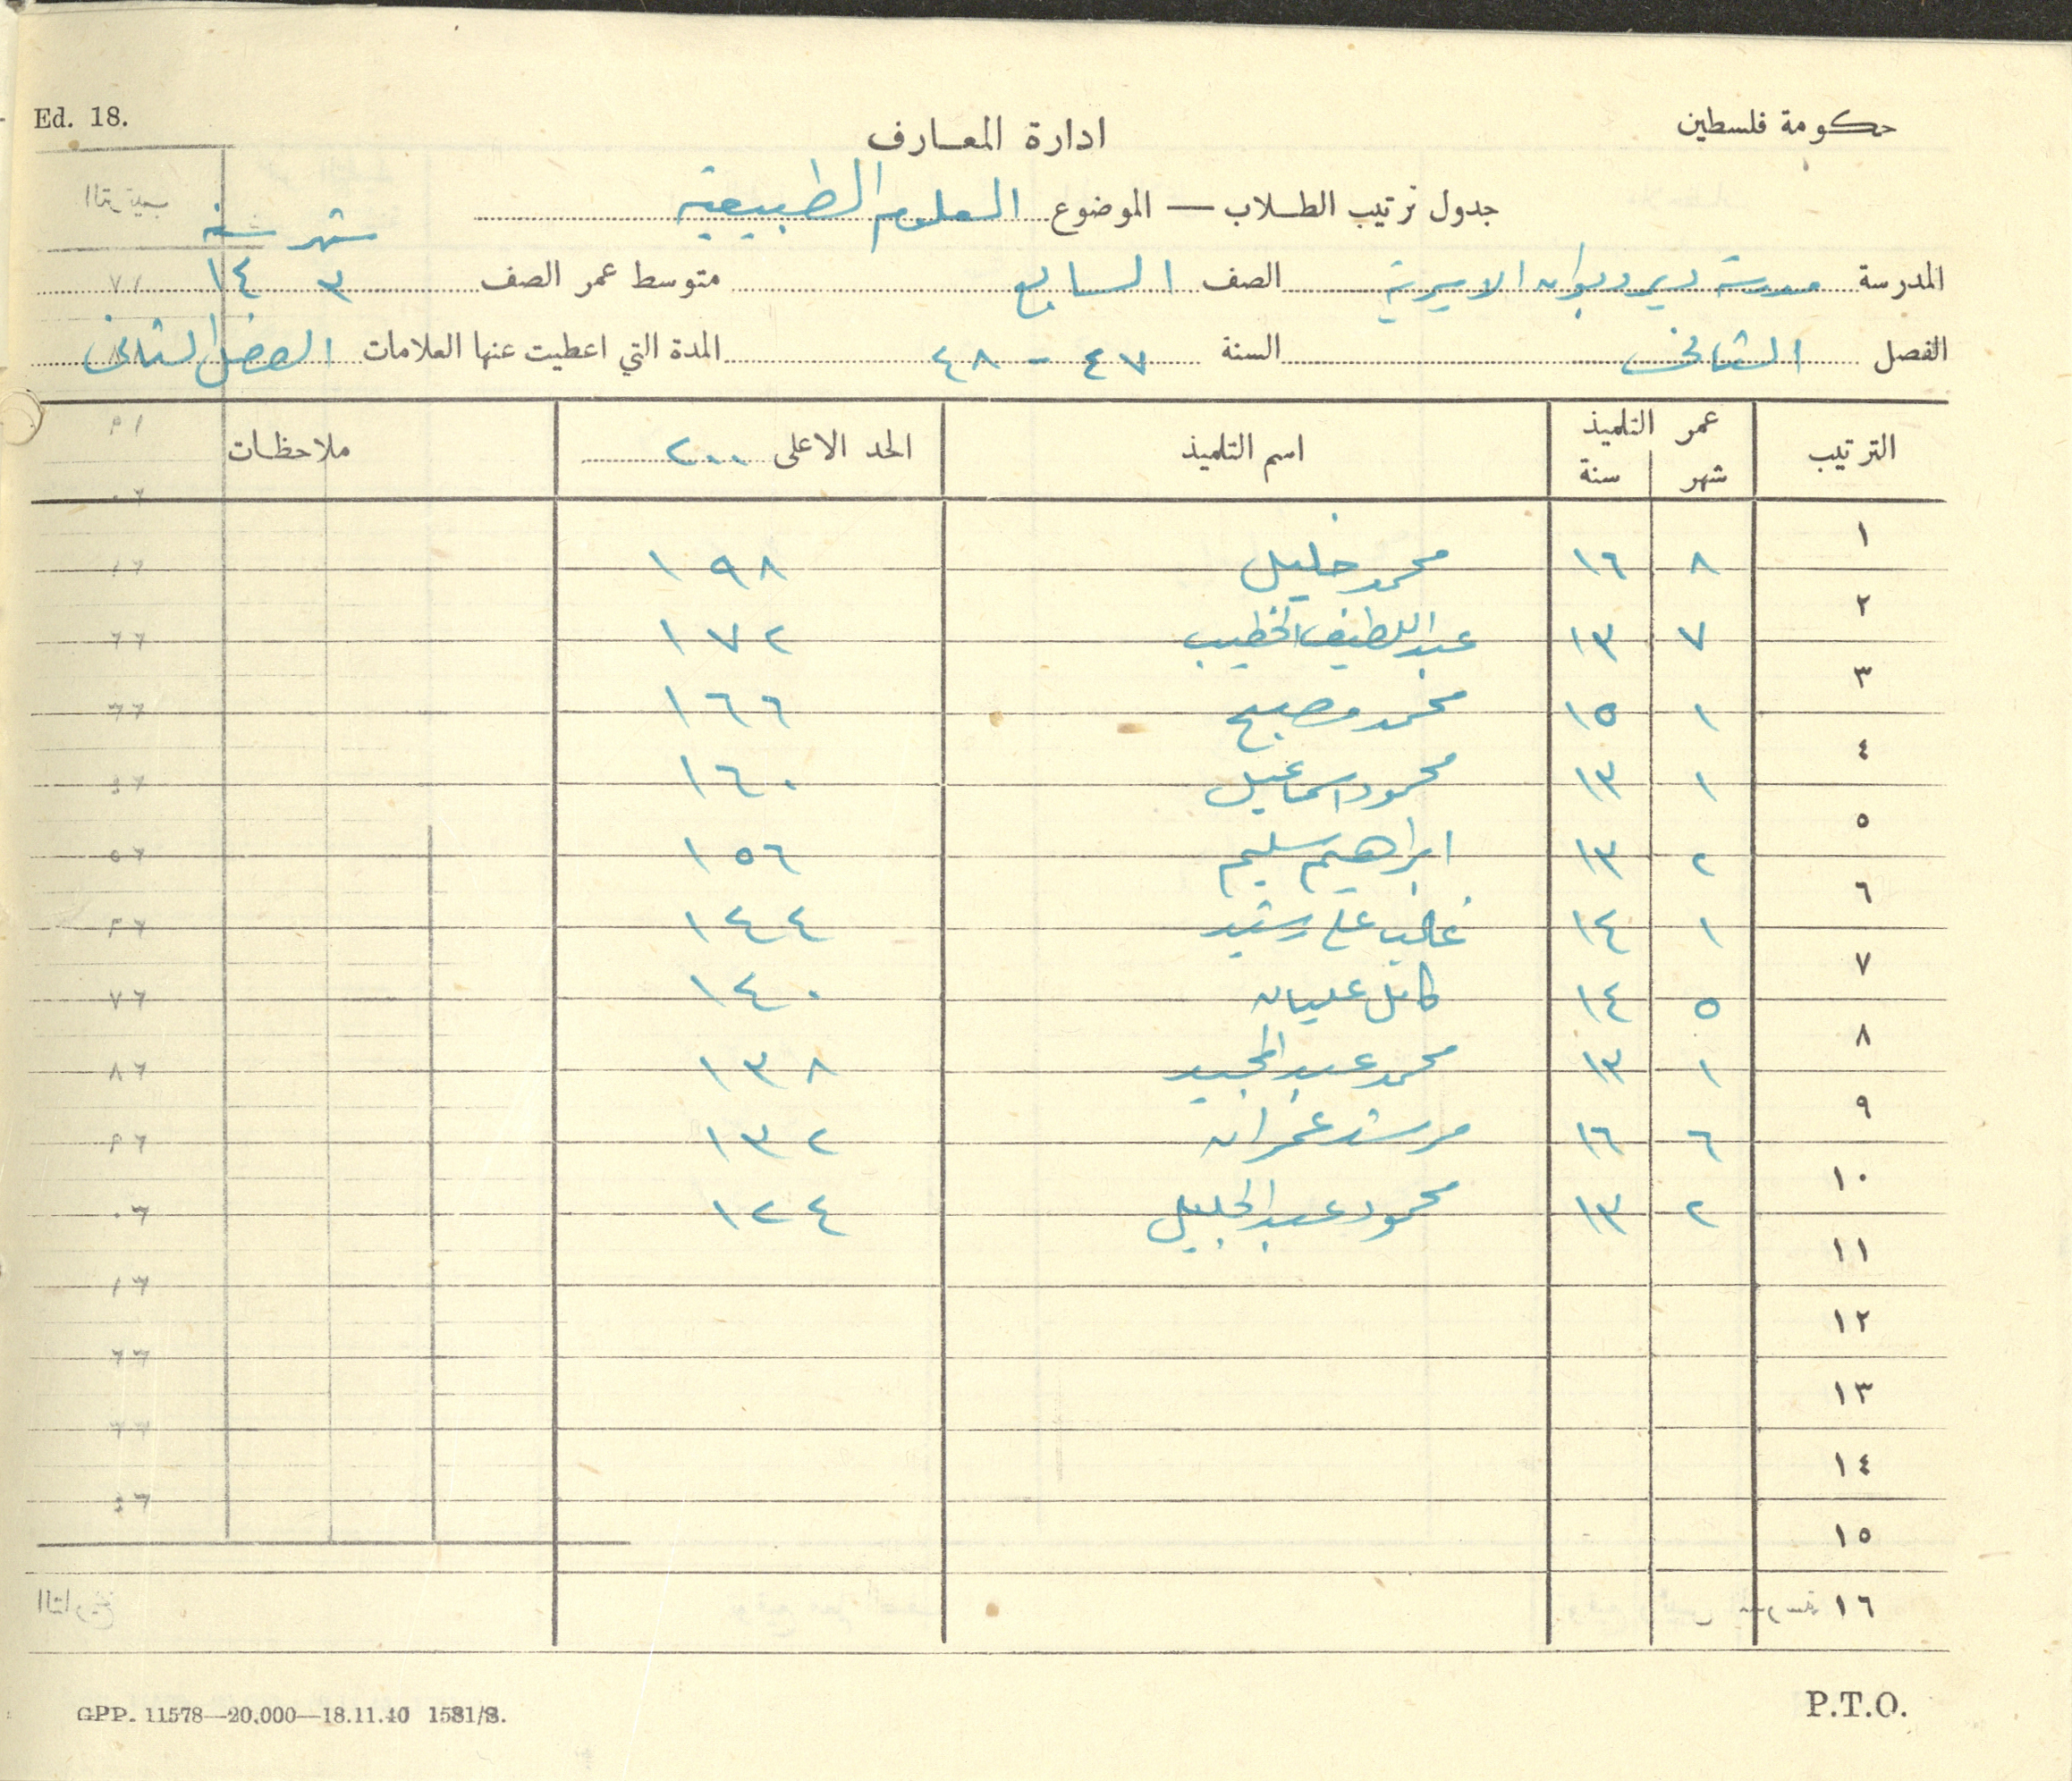 Ed. 18.
حكومة فلسطين
ادارة المعارف
جدول ترتيب الطلاب — الموضوع العلوم الطبيعية
شهر سنة
المدرسة مدرسة دير ديوان الاميرية الصف السابع متوسط عمر الصف ٣ ١٤
الفصل الثاني السنة ٤٧ - ٤٨ المدة التي اعطيت عنها العلامات الفصل الثاني
الترتيب عمر التلميذ شهر سنة اسم التلميذ الحد الاعلى ٢٠٠ ملاحظات
١ ٨ ١٦ محمد خليل ١٩٨
٢ ٧ ١٣ عبد اللطيف الخطيب ١٧٢
٣ ١ ١٥ محمد مصبح ١٦٦
٤ ١ ١٣ محمود اسماعيل ١٦٠
٥ ٢ ١٣ ابراهيم سليم ١٥٦
٦ ١ ١٤ غالب علي رشيد ١٤٤
٧ ٥ ١٤ كامل عليان ١٤٠
٨ ١ ١٣ محمد عبد المجيد ١٣٨
٩ ٦ ١٦ مرشد عمران ١٣٢
١٠ ٢ ١٣ محمود عبد الجليل ١٢٤
١١
١٢
١٣
١٤
١٥
١٦
GPP. 11578—20,000—18.11.40 1581/S.
P.T.O.